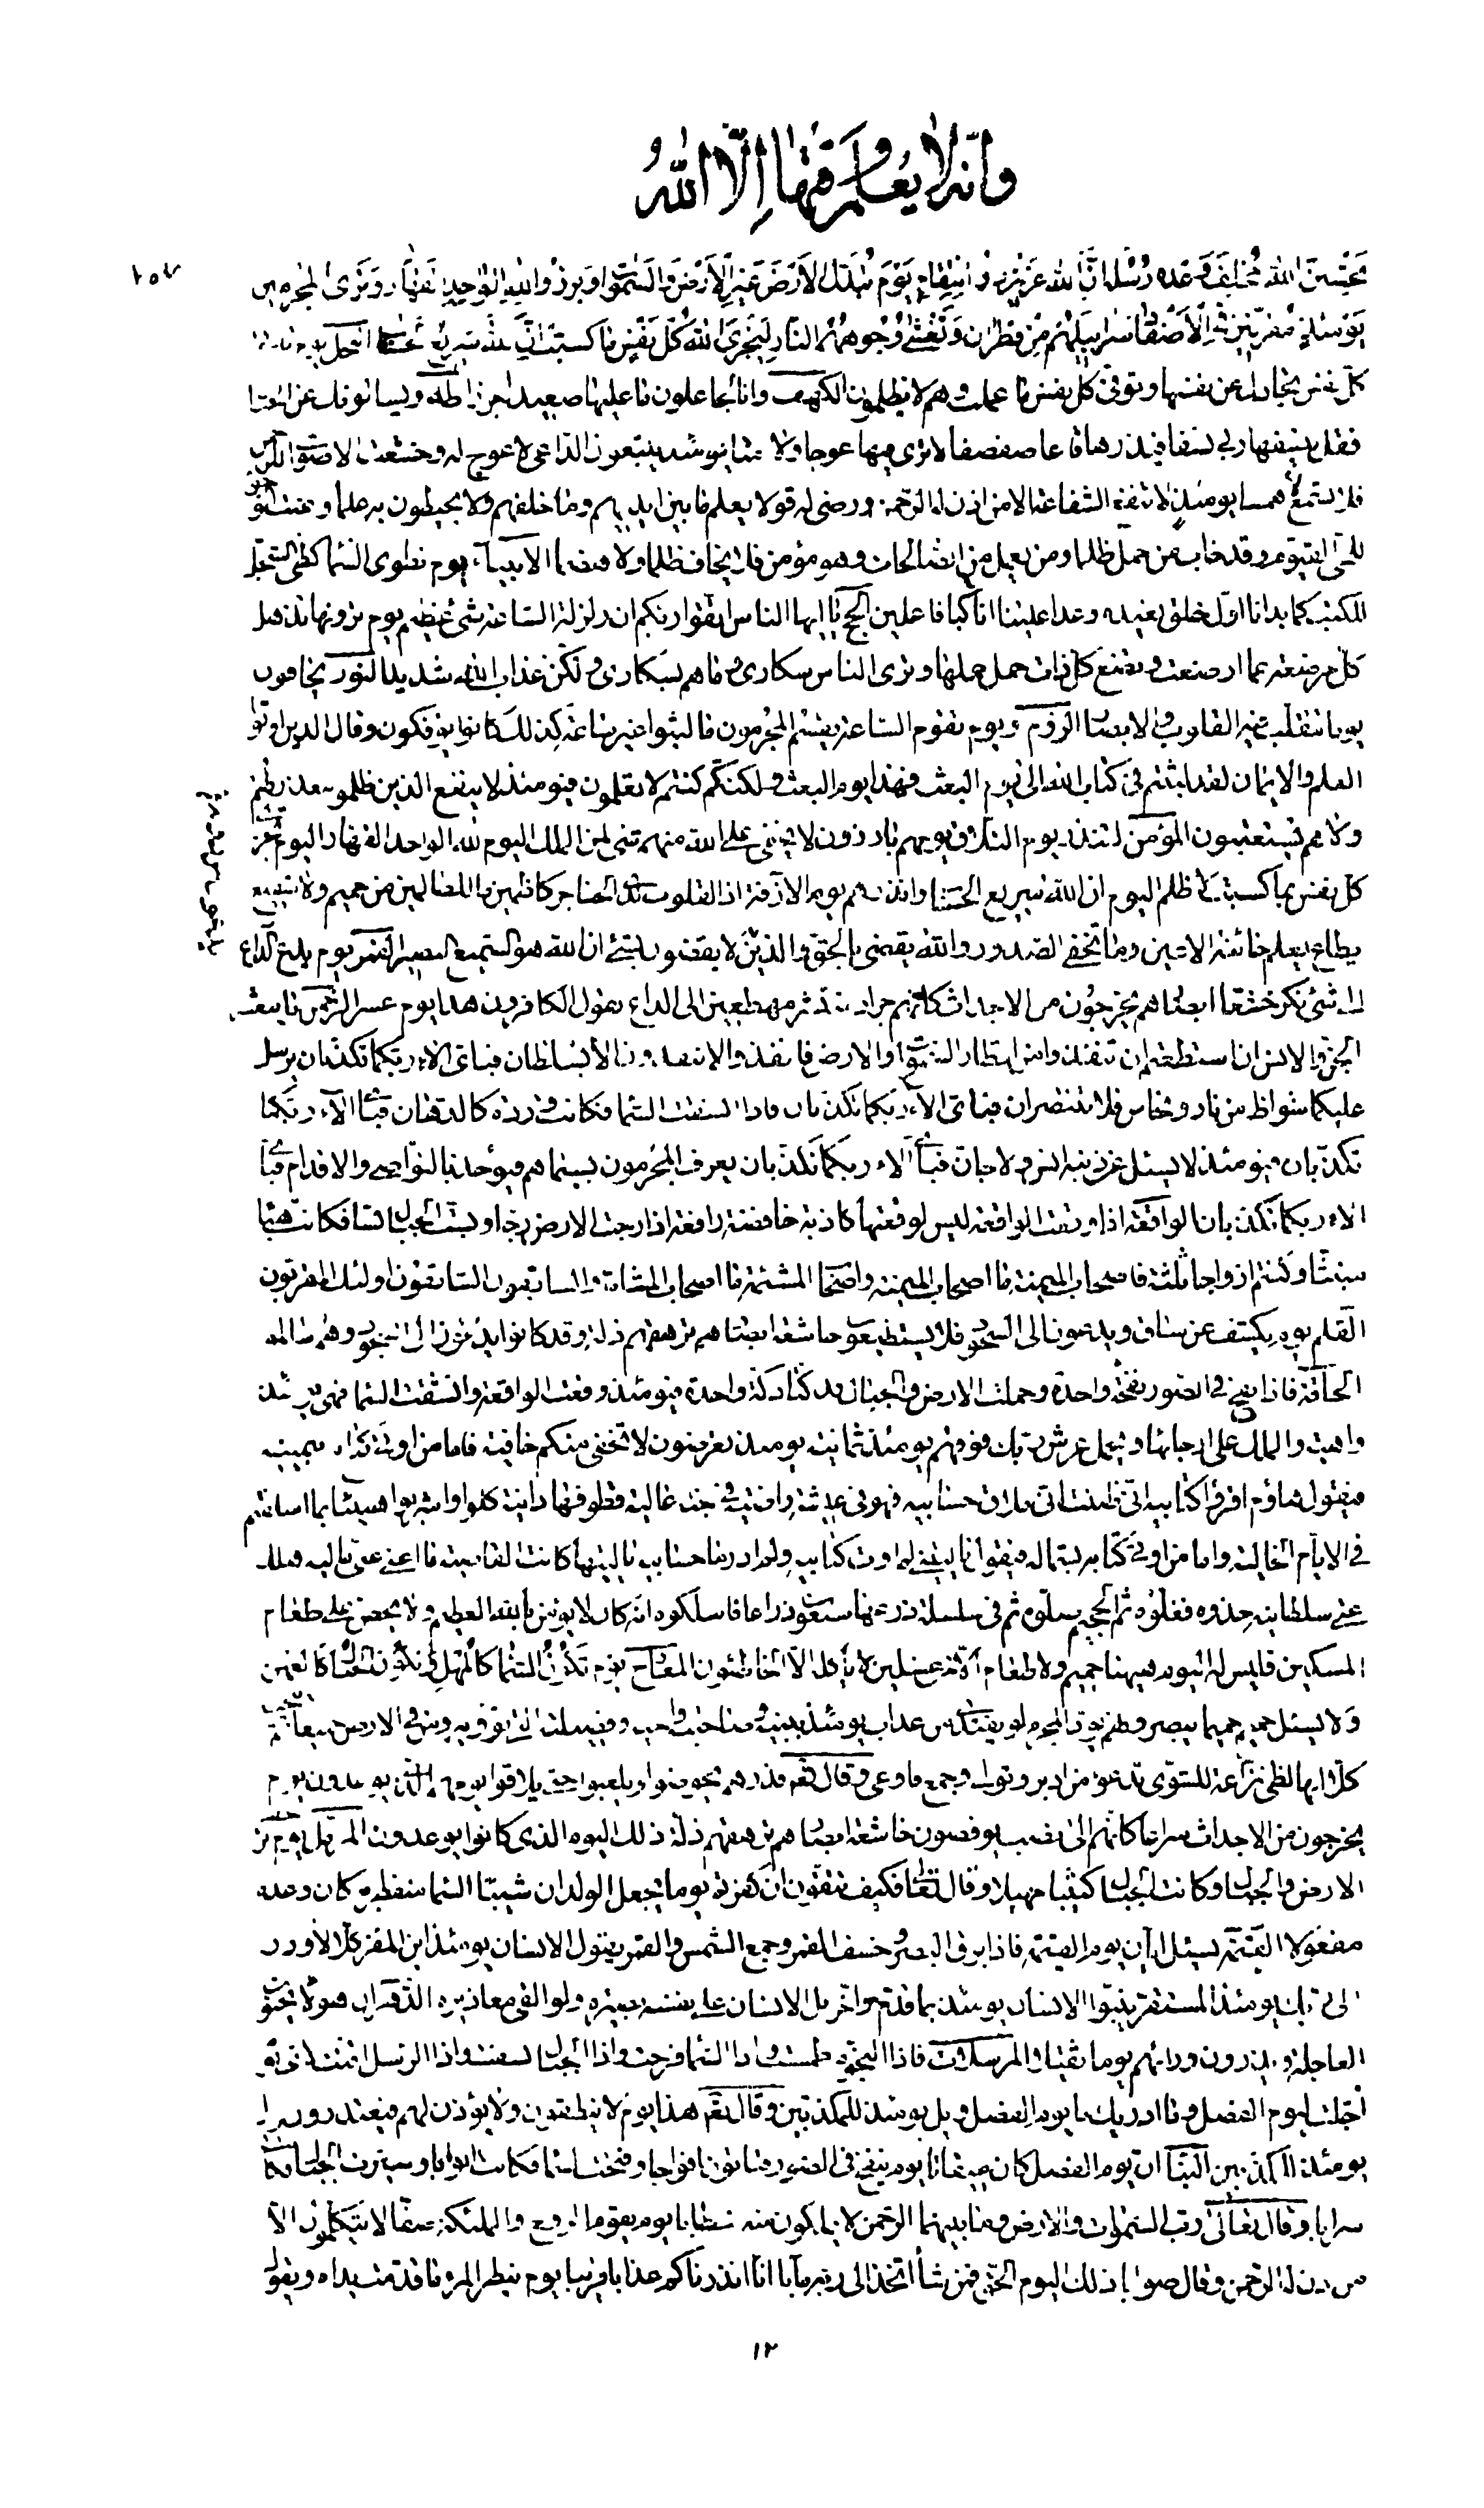 وانه لا يعلم وقتها الا الله
٢٥٢
تحسبن الله مخلف وعده رسله ان الله عزيز ذو انتقام يوم تبدل الارض غير الارض والسموات وبرزوا لله الواحد القهار وترى المجرمين
يومئذ مقرنين في الاصفاد سرابيلهم من قطران وتغشى وجوههم النار ليجزي الله كل نفس ما كسبت ان الله سريع الحساب النحل يوم تاتي
كل نفس تجادل عن نفسها وتوفى كل نفس ما عملت وهم لا يظلمون الكهف وانا لجاعلون ما عليها صعيدا جرزا طه ويسالونك عن الجبال
فقل ينسفها ربي نسفا فيذرها قاعا صفصفا لا ترى فيها عوجا ولا امتا يومئذ يتبعون الداعي لا عوج له وخشعت الاصوات للرحمن
فلا تسمع الا همسا يومئذ لا تنفع الشفاعة الا من اذن له الرحمن ورضي له قولا يعلم ما بين ايديهم وما خلفهم ولا يحيطون به علما وعنت الوجوه
للحي القيوم وقد خاب من حمل ظلما ومن يعمل من الصالحات وهو مؤمن فلا يخاف ظلما ولا هضما الانبياء يوم نطوي السماء كطي السجل
للكتب كما بدانا اول خلق نعيده وعدا علينا انا كنا فاعلين الحج يا ايها الناس اتقوا ربكم ان زلزلة الساعة شيء عظيم يوم ترونها تذهل
كل مرضعة عما ارضعت وتضع كل ذات حمل حملها وترى الناس سكارى وما هم بسكارى ولكن عذاب الله شديد النور يخافون
يوما تتقلب فيه القلوب والابصار الروم ويوم تقوم الساعة يقسم المجرمون ما لبثوا غير ساعة كذلك كانوا يؤفكون وقال الذين اوتوا
العلم والايمان لقد لبثتم في كتاب الله الى يوم البعث فهذا يوم البعث ولكنكم كنتم لا تعلمون فيومئذ لا ينفع الذين ظلموا معذرتهم
ولا هم يستعتبون المؤمن لتنذر يوم التلاق يوم هم بارزون لا يخفى على الله منهم شئ لمن الملك اليوم لله الواحد القهار اليوم تجزى
كل نفس بما كسبت لا ظلم اليوم ان الله سريع الحساب وانذرهم يوم الازفة اذ القلوب لدى الحناجر كاظمين ما للظالمين من حميم ولا شفيع
يطاع يعلم خائنة الاعين وما تخفى الصدور والله يقضى بالحق والذين لا يقضون بشئ ان الله هو السميع البصير القمر يوم يدع الداع
الى شئ نكر خشعا ابصارهم يخرجون من الاجداث كانهم جراد منتشر مهطعين الى الداع يقول الكافرون هذا يوم عسر الرحمن يا معشر
الجن والانس ان استطعتم ان تنفذوا من اقطار السموات والارض فانفذوا لا تنفذون الا بسلطان فباى الاء ربكما تكذبان يرسل
عليكما شواظ من نار ونحاس فلا تنتصران فباى الاء ربكما تكذبان فاذا انشقت السماء فكانت وردة كالدهان فباى الاء ربكما
تكذبان فيومئذ لا يسئل عن ذنبه انس ولا جان فباى الاء ربكما تكذبان يعرف المجرمون بسيماهم فيؤخذ بالنواصى والاقدام فباى
الاء ربكما تكذبان الواقعة اذا وقعت الواقعة ليس لوقعتها كاذبة خافضة رافعة اذا رجت الارض رجا وبست الجبال بسا فكانت هباء
منبثا وكنتم ازواجا ثلثة فاصحاب الميمنة ما اصحاب الميمنة واصحاب المشئمة ما اصحاب المشئمة والسابقون السابقون اولئك المقربون
القلم يوم يكشف عن ساق ويدعون الى السجود فلا يستطيعون خاشعة ابصارهم ترهقهم ذلة وقد كانوا يدعون الى السجود وهم سالمون
الحاقة فاذا نفخ في الصور نفخة واحدة وحملت الارض والجبال فدكتا دكة واحدة فيومئذ وقعت الواقعة وانشقت السماء فهى يومئذ
واهية والملك على ارجائها ويحمل عرش ربك فوقهم يومئذ ثمانية يومئذ تعرضون لا تخفى منكم خافية فاما من اوتى كتابه بيمينه
فيقول هاؤم اقرؤا كتابيه انى ظننت انى ملاق حسابيه فهو فى عيشة راضية فى جنة عالية قطوفها دانية كلوا واشربوا هنيئا بما اسلفتم
في الايام الخالية واما من اوتى كتابه بشماله فيقول يا ليتنى لم اوت كتابيه ولم ادر ما حسابيه يا ليتها كانت القاضية ما اغنى عنى ماليه هلك
عنى سلطانيه خذوه فغلوه ثم الجحيم صلوه ثم فى سلسلة ذرعها سبعون ذراعا فاسلكوه انه كان لا يؤمن بالله العظيم ولا يحض على طعام
المسكين فليس له اليوم هيهنا حميم ولا طعام الا من غسلين لا ياكله الا الخاطئون المعارج يوم تكون السماء كالمهل وتكون الجبال كالعهن
ولا يسئل حميم حميما يبصرونهم يود المجرم لو يفتدى من عذاب يومئذ ببنيه وصاحبته واخيه وفصيلته التى تؤويه ومن فى الارض جميعا ثم ينجيه
كلا انها لظى نزاعة للشوى تدعو من ادبر وتولى وجمع فاوعى وقال تعالى فذرهم يخوضوا ويلعبوا حتى يلاقوا يومهم الذى يوعدون يوم
يخرجون من الاجداث سراعا كانهم الى نصب يوفضون خاشعة ابصارهم ترهقهم ذلة ذلك اليوم الذى كانوا يوعدون المزمل يوم ترجف
الارض والجبال وكانت الجبال كثيبا مهيلا وقال تعالى فكيف تتقون ان كفرتم يوما يجعل الولدان شيبا السماء منفطر به كان وعده
مفعولا القيمة يسئل ايان يوم القيمة فاذا برق البصر وخسف القمر وجمع الشمس والقمر يقول الانسان يومئذ اين المفر كلا لا وزر
الى ربك يومئذ المستقر ينبؤا الانسان يومئذ بما قدم واخر بل الانسان على نفسه بصيرة ولو القى معاذيره الدهر ان هؤلاء يحبون
العاجلة ويذرون وراءهم يوما ثقيلا المرسلات فاذا النجوم طمست واذا السماء فرجت واذا الجبال نسفت واذا الرسل اقتت لاى يوم
اجلت ليوم الفصل وما ادريك ما يوم الفصل ويل يومئذ للمكذبين وقال تعالى هذا يوم لا ينطقون ولا يؤذن لهم فيعتذرون ويل
يومئذ للمكذبين النبا ان يوم الفصل كان ميقاتا يوم ينفخ فى الصور فتاتون افواجا وفتحت السماء فكانت ابوابا وسيرت الجبال فكانت
سرابا وقال تعالى رب السموات والارض وما بينهما الرحمن لا يملكون منه خطابا يوم يقوم الروح والملئكة صفا لا يتكلمون الا
من اذن له الرحمن وقال صوابا ذلك اليوم الحق فمن شاء اتخذ الى ربه مابا انا انذرناكم عذابا قريبا يوم ينظر المرء ما قدمت يداه ويقول
١٢